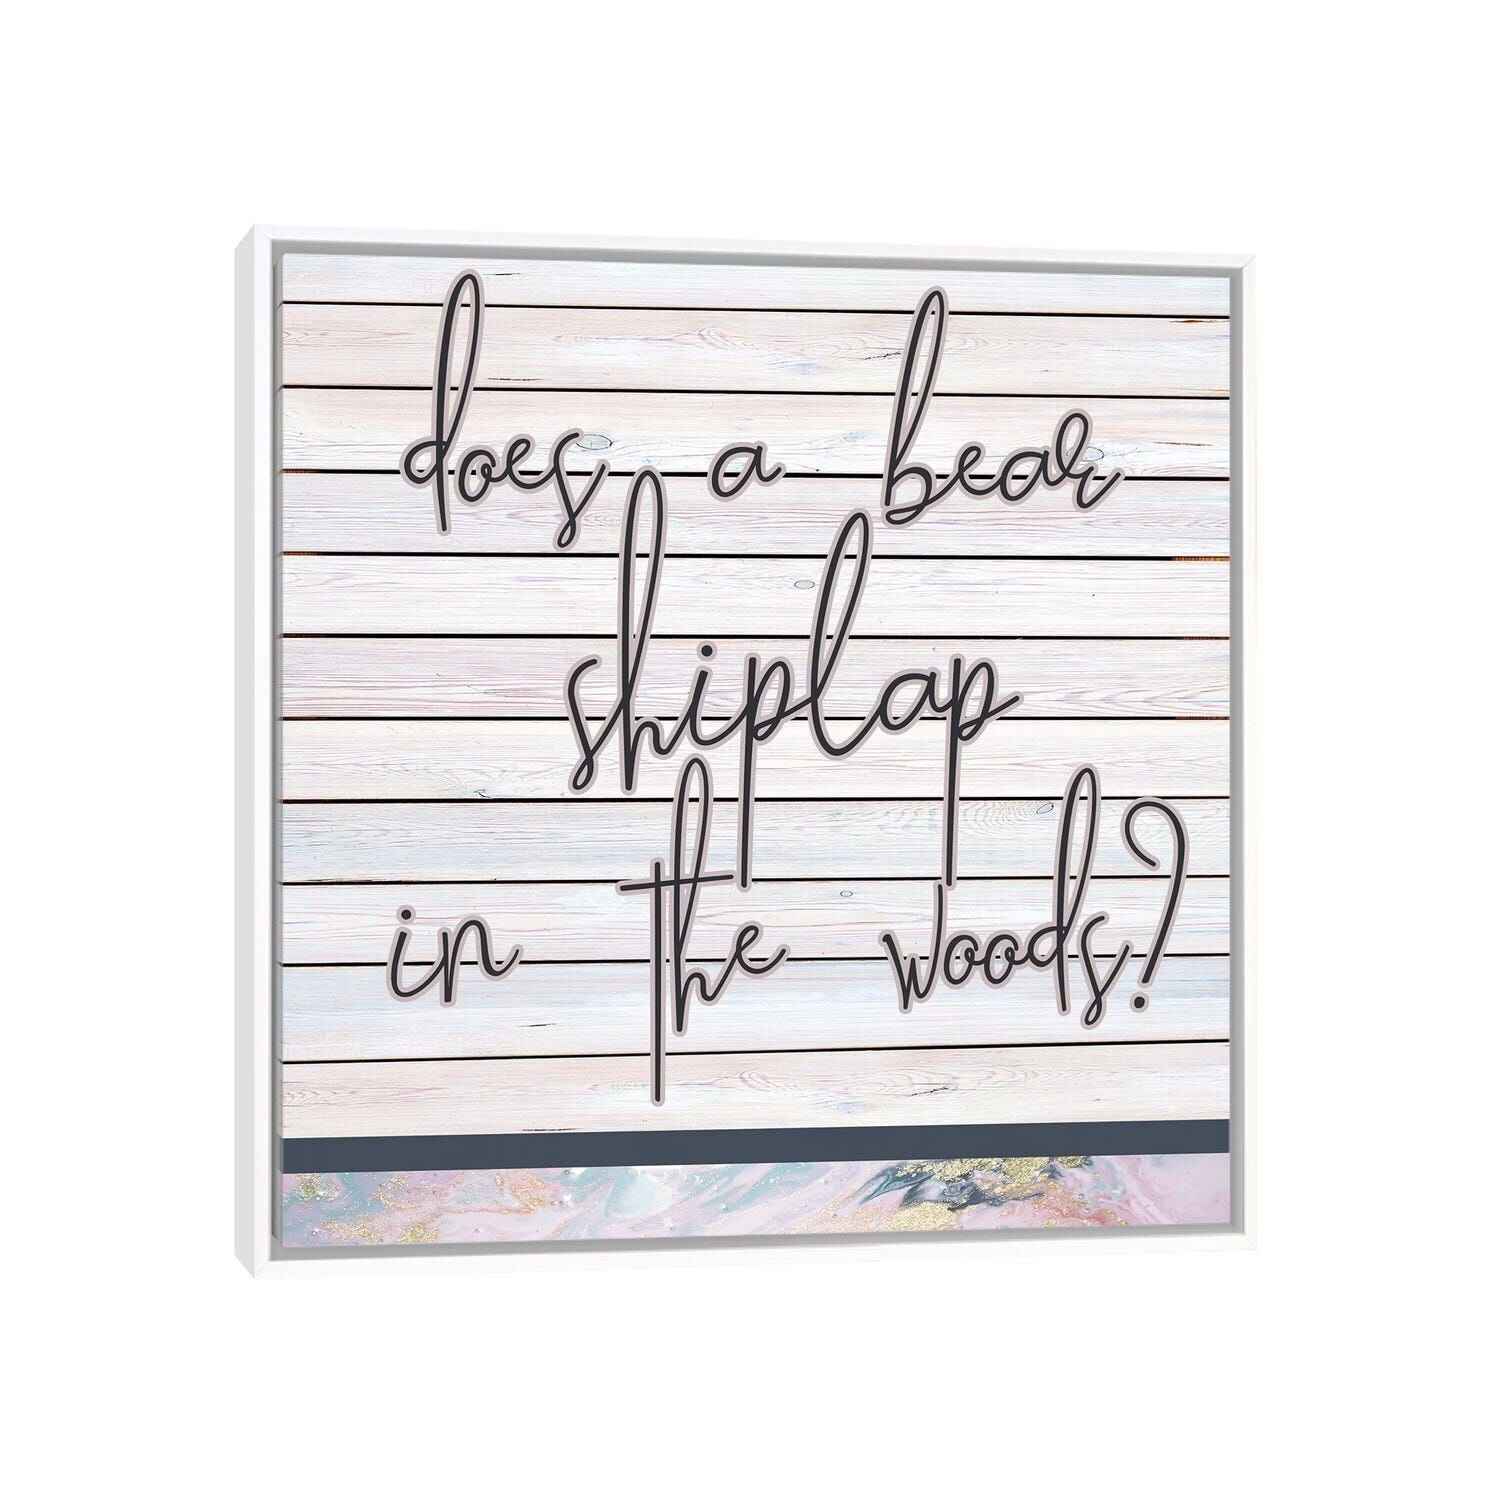 does a bear
shiplap
in the woods?